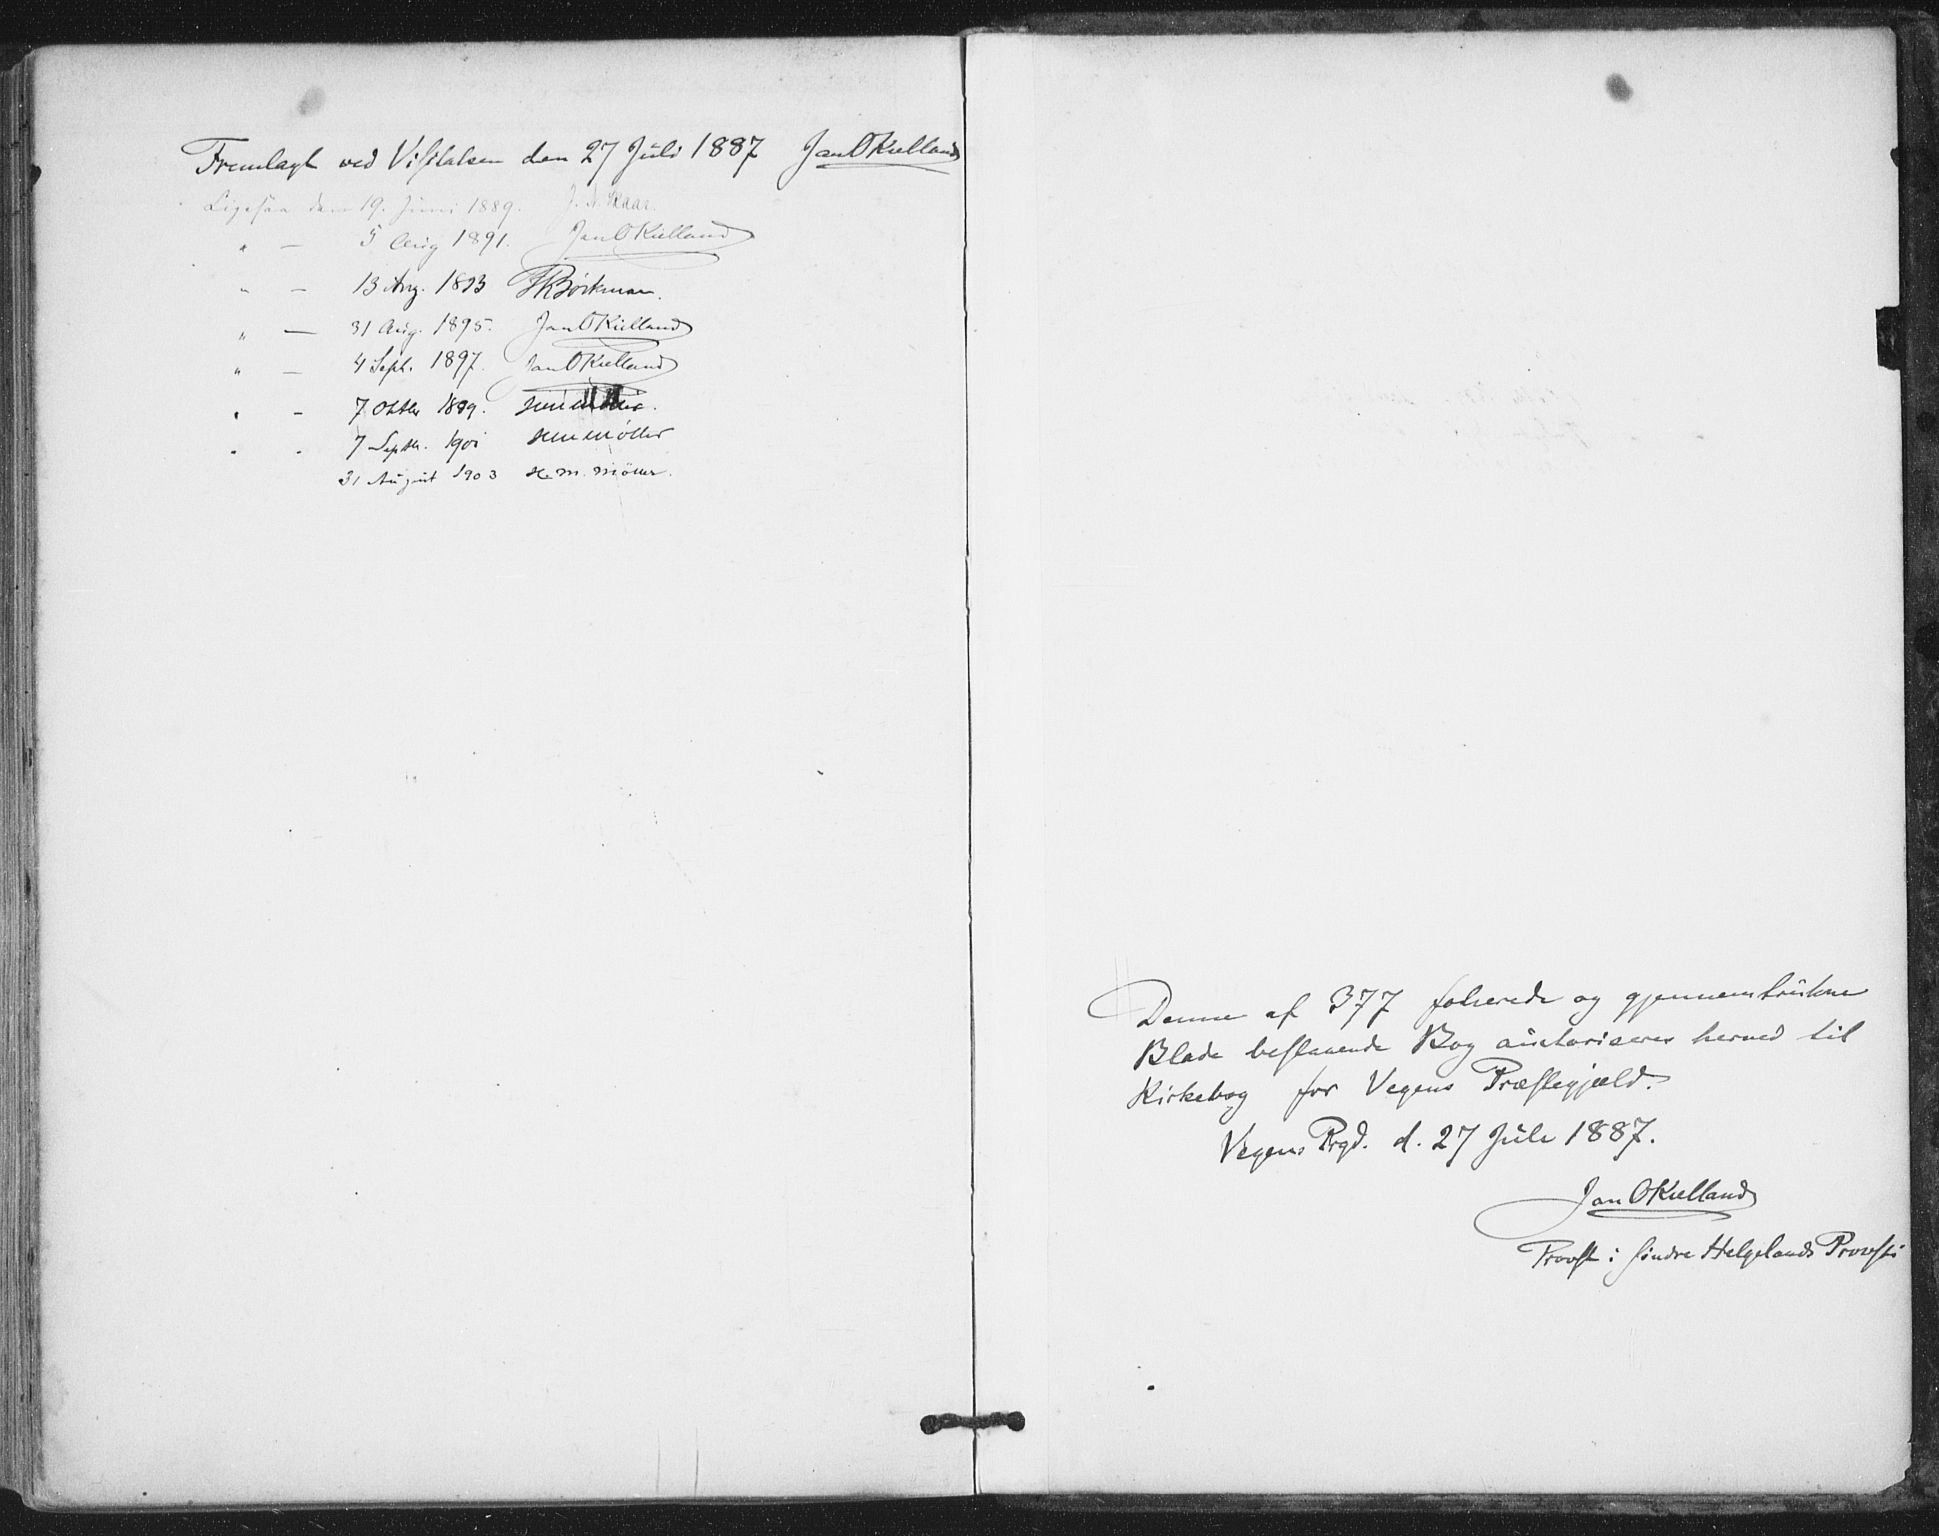 Fremlagt ved Visitatsen den 27 Juli 1887 Jan O Kielland
Ligesaa den 19. Juni 1889. J. N. Skaar.
" — 5 Aug 1891. Jan O Kielland
" — 13 Aug. 1893 Bøckman.
" — 31 Aug. 1895. Jan O Kielland
" — 4 Sept. 1897. Jan O Kielland
" - 7 Oktbr 1899.
" . 7 Septbr. 1901 Møller
31 August 1903 H. M. Møller.
Denne af 377 folierede og gjennemtrukne
Blade bestaaende Bog autoriseres herved til
Kirkebog for Vegens Præstegjæld.
Vegens Prgd. d. 27 Juli 1887.
Jan O Kielland
Provst i søndre Helgelands Provsti